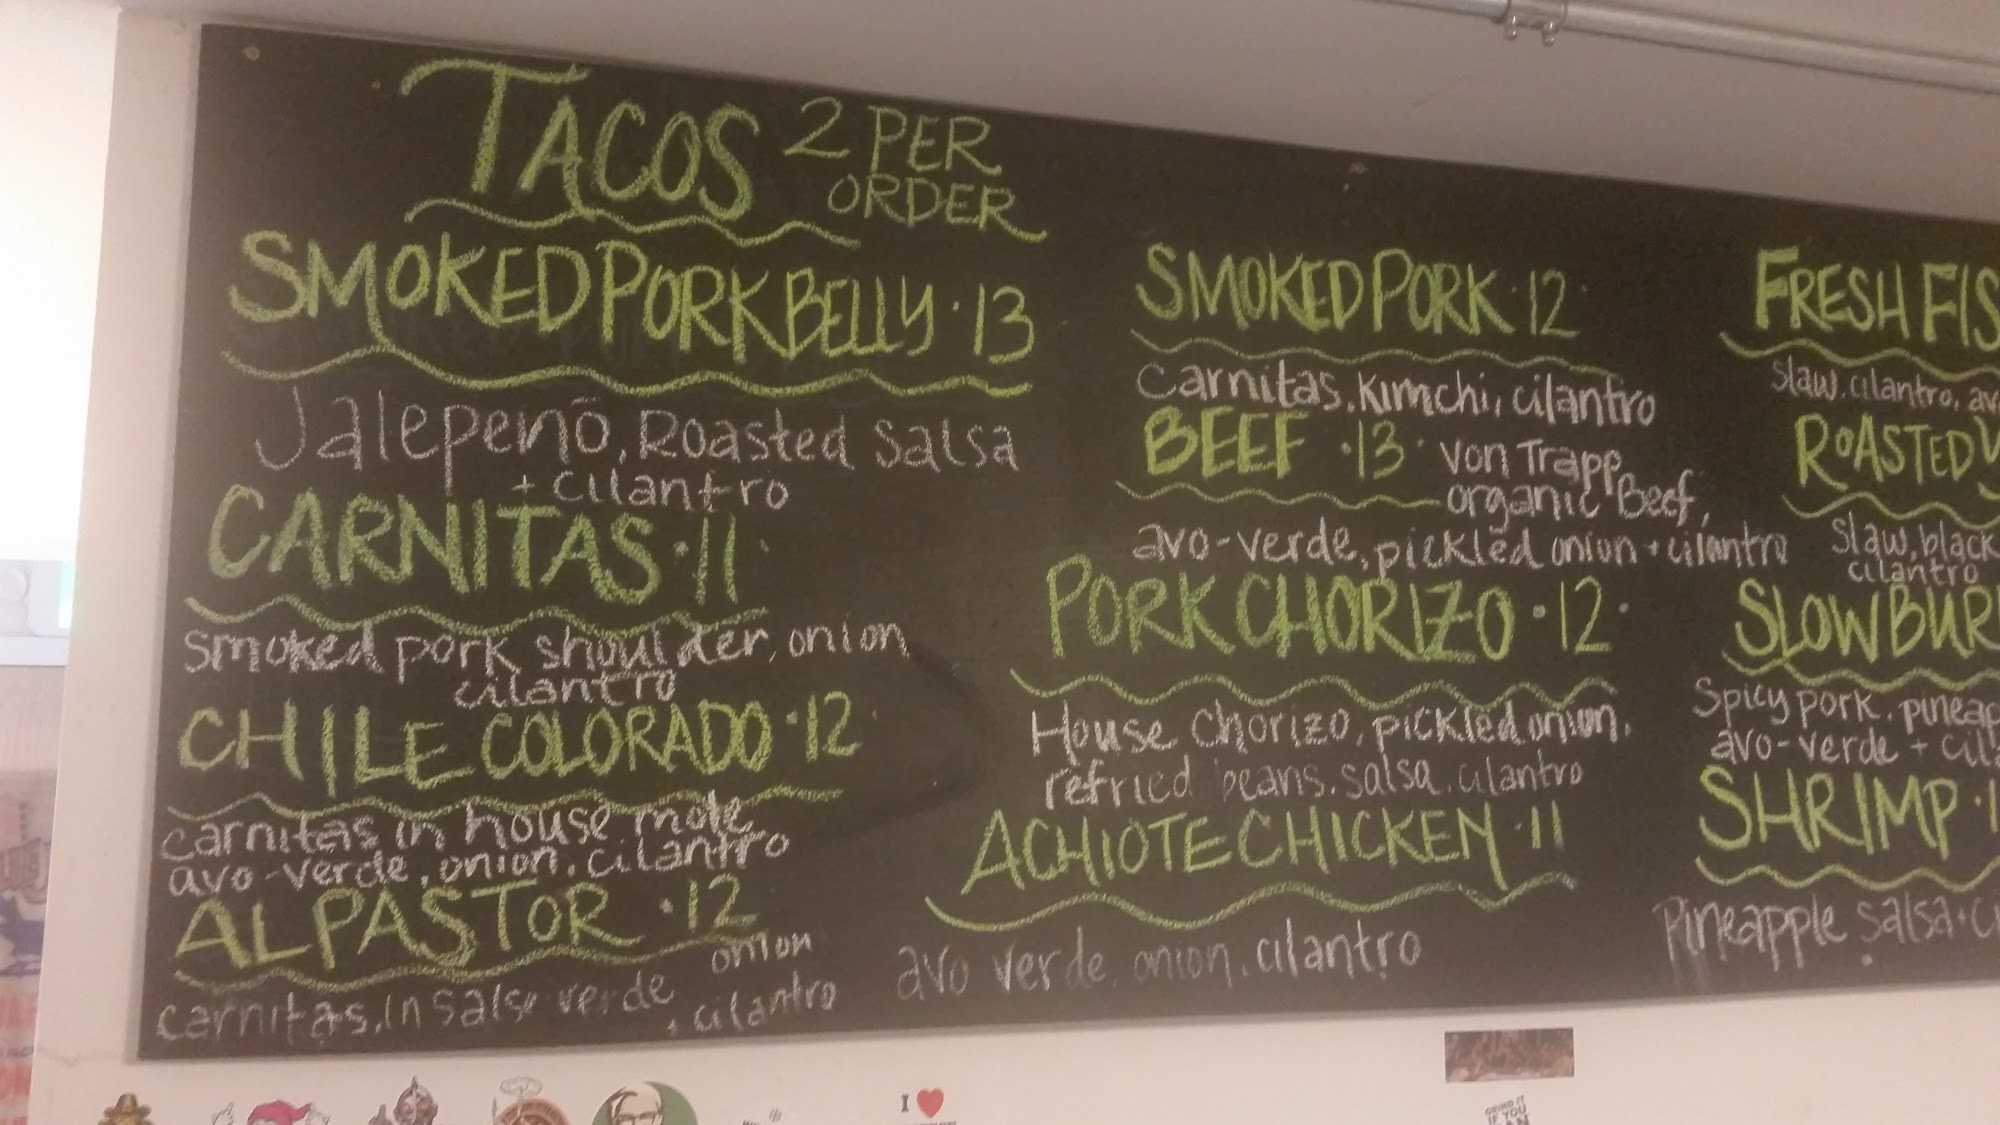 TACOS 2 PER
ORDER
SMOKED PORK BELLY · 13
Jalepeno, Roasted Salsa
+ cilantro
CARNITAS · 11
smoked pork shoulder, onion
cilantro
CHILE COLORADO · 12
carnitas in house mole
avo-verde, onion, cilantro
AL PASTOR · 12
carnitas, in salsa verde
onion
, cilantro
SMOKED PORK · 12
Carnitas, Kimchi, cilantro
BEEF · 13 · Von Trapp
organic Beef,
avo-verde, pickled onion + cilantro
PORK CHORIZO · 12 ·
House Chorizo, pickled onion,
refried beans, salsa, cilantro
ACHIOTE CHICKEN · 11
avo verde, onion, cilantro
FRESH FIS
Slaw, cilantro, av
ROASTED
Slaw, black
cilantro
SLOW BUR
Spicy pork, pineap
avo-verde + cil
SHRIMP · 1
Pineapple Salsa + Ci
I
GRIND IT
IF YOU